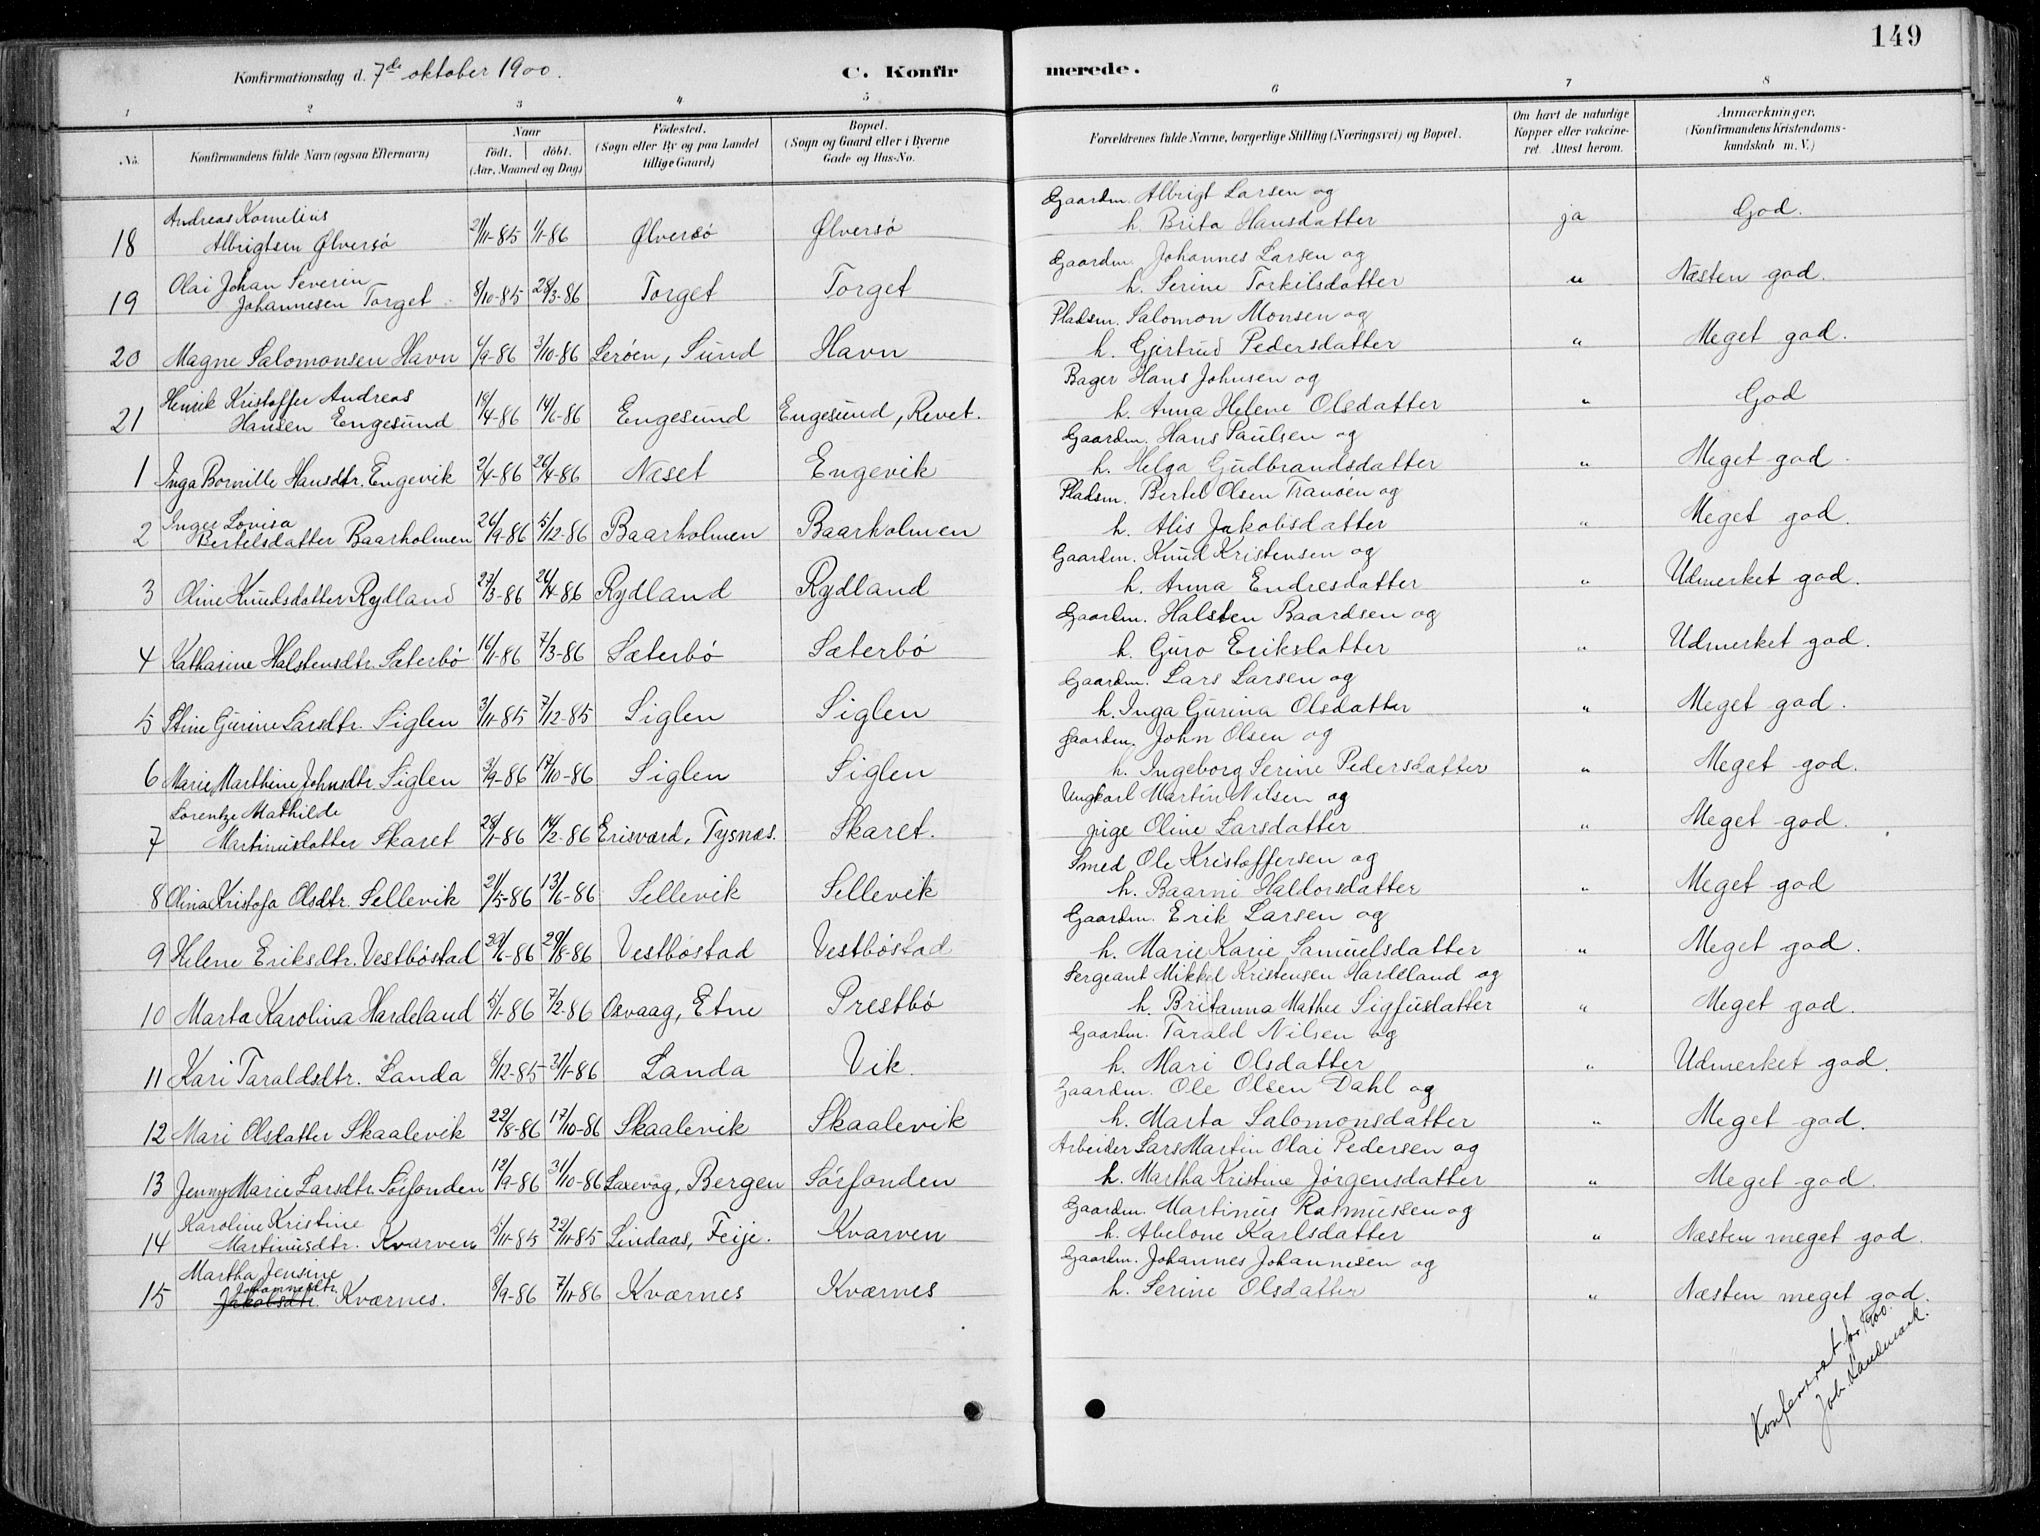 149
Konfirmationsdag d. 7de oktober 1900.
C. Konfirmerede.
1 2 3 4 5 6 7 8
No.
Konfirmandens fulde Navn (ogsaa Efternavn)
Naar
født. døbt.
(Aar, Maaned og Dag)
Fødested.
(Sogn eller By og paa Landet
tillige Gaard)
Bopæl.
(Sogn og Gaard eller i Byerne
Gade og Hus-No.
Forældrenes fulde Navne, borgerlige Stilling (Næringsvei) og Bopæl.
Om havt de naturlige
Kopper eller vakcine-
ret. Attest herom.
Anmærkninger.
(Konfirmandens Kristendoms-
kundskab m. V.)
Andreas Kornelius Gaardm. Albrigt Larsen og
18 Albrigtsen Ølversø 21/11-85 1/1-86 Ølversø Ølversø h. Brita Hansdatter ja God.
Olai Johan Severin Gaardm. Johannes Larsen og
19 Johannesen Torget 8/10-85 28/3-86 Torget Torget h. Serine Torkilsdatter " Næsten god.
Pladsm. Salomon Monsen og
20 Magne Salomonsen Havn 4/9-86 3/10-86 Serøen, Sund Havn h. Gjertrud Pedersdatter " Meget god.
Henrik Kristoffer Andreas Bager Hans Johnsen og
21 Hansen Engesund 19/4-86 14/6-86 Engesund Engesund, Revet. h. Anna Helene Olsdatter " God
Gaardm. Hans Paulsen og
1 Inga Bornille Hansdtr. Engevik 2/4-86 26/4-86 Næset Engevik h. Helga Gudbrandsdatter " Meget god.
Inger Lovisa Pladsm. Bertel Olsen Tranøen og
2 Bertelsdatter Baarholmen 26/9-86 5/12-86 Baarholmen Baarholmen h. Alis Jakobsdatter " Meget god.
Gaardm. Knud Kristensen og
3 Oline Knudsdatter Rydland 27/3-86 26/4-86 Rydland Rydland h. Anna Endresdatter " Udmerket god.
Gaardm. Halsten Baardsen og
4 Katharine Halstensdtr. Sæterbø 16/1-86 7/3-86 Sæterbø Sæterbø h. Guro Eriksdatter " Udmerket god.
Gaardm. Lars Larsen og
5 Stine Gurine Larsdtr. Siglen 3/11-85 7/12-85 Siglen Siglen h. Inga Gurina Olsdatter " Meget god.
Gaardm. John Olsen og
6 Marie Marthine Johnsdtr. Siglen 3/9-86 17/10-86 Siglen Siglen h. Ingeborg Serine Pedersdatter " Meget god.
Lorentze Mathilde Ungkarl Martin Nilsen og
7 Martinusdatter Skaret 28/1-86 14/2-86 Erisværd, Tysnæs. Skaret. pige Oline Larsdatter " Meget god.
Smed Ole Kristoffersen og
8 Olina Kristofa Olsdtr. Sellevik 21/5-86 13/6-86 Sellevik Sellevik h. Baarni Haldorsdatter " Meget god
Gaardm. Erik Larsen og
9 Helene Eriksdtr. Vestbøstad 30/6-86 29/8-86 Vestbøstad Vestbøstad h. Marie Karie Samuelsdatter " Meget god.
Sergeant Mikkel Kristensen Hardeland og
10 Marta Karolina Hardeland 5/1-86 7/2-86 Osvaag, Etne Prestbø h. Britanna Mathea Sigfusdatter " Meget god.
Gaardm. Tarald Nilsen og
11 Kari Taraldsdtr. Landa 8/12-85 31/1-86 Landa Vik. h. Mari Olsdatter " Udmerket god.
Gaardm. Ole Olsen Dahl og
12 Mari Olsdatter Skaalevik 22/8-86 17/10-86 Skaalevik Skaalevik h. Marta Salomonsdatter " Meget god.
Arbeider Lars Martin Olai Pedersen og
13 Jenny Marie Larsdtr. Sørfonden 12/9-86 31/10-86 Laxevåg, Bergen Sørfonden h. Martha Kristine Jørgensdatter " Meget god.
Karoline Kristine Gaardm. Martinus Rasmussen og
14 Martinusdtr. Kvarven 5/11-85 22/11-85 Lindaas, Feije. Kvarven h. Abelone Karlsdatter " Næsten meget god.
Martha Jensine Gaardm. Johannes Johannesen og
Johannesdtr.
15 Jakobsdtr. Kværnes. 8/9-86 7/11-86 Kværnes Kværnes h. Serine Olsdatter " Næsten meget god.
Konfereret for 1900.
Joh. Landmark.